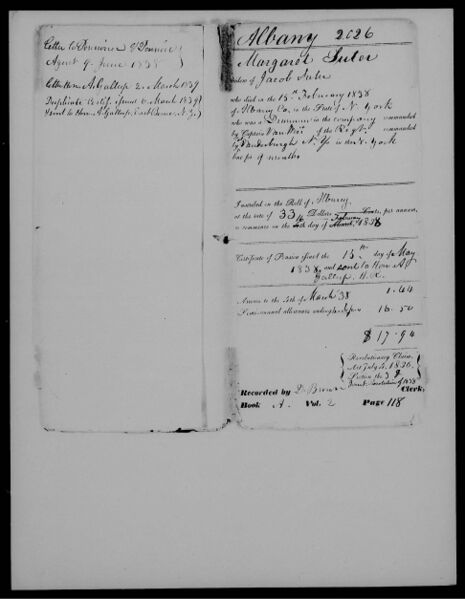 Letter to Pensioner & Pension
Agent 9 June 1838
Letter Hon. A. Gallup 2 March 1839
Duplicate Certif. issued 2 March 1839
sent to Hon. A. Gallup, East Berne N.Y.
Albany 2026
Margaret Suter
widow of Jacob Suter
who died on the 15th February 1838
of Albany Co. in the State of N. York
who was a Drummer in the company commanded
by Captain Van of the Regt. commanded
by in the N. York
for 9 months
Inscribed on the Roll of Albany
at the rate of 33 Dollars Cents, per annum,
to commence on the day of February 1838
Certificate of Pension issued the 15th day of May
1838 and sent to Hon. A.
Gallup, H.R.
Arrears to the 4th of March 38 1.44
Semi-annual allowance ending Sepr 16.50
$17.94
Revolutionary Claim,
Act July 4, 1836,
Section the 3d
Resolution of 1838
Recorded by D. Brown Clerk,
Book A. Vol. 2 Page 118